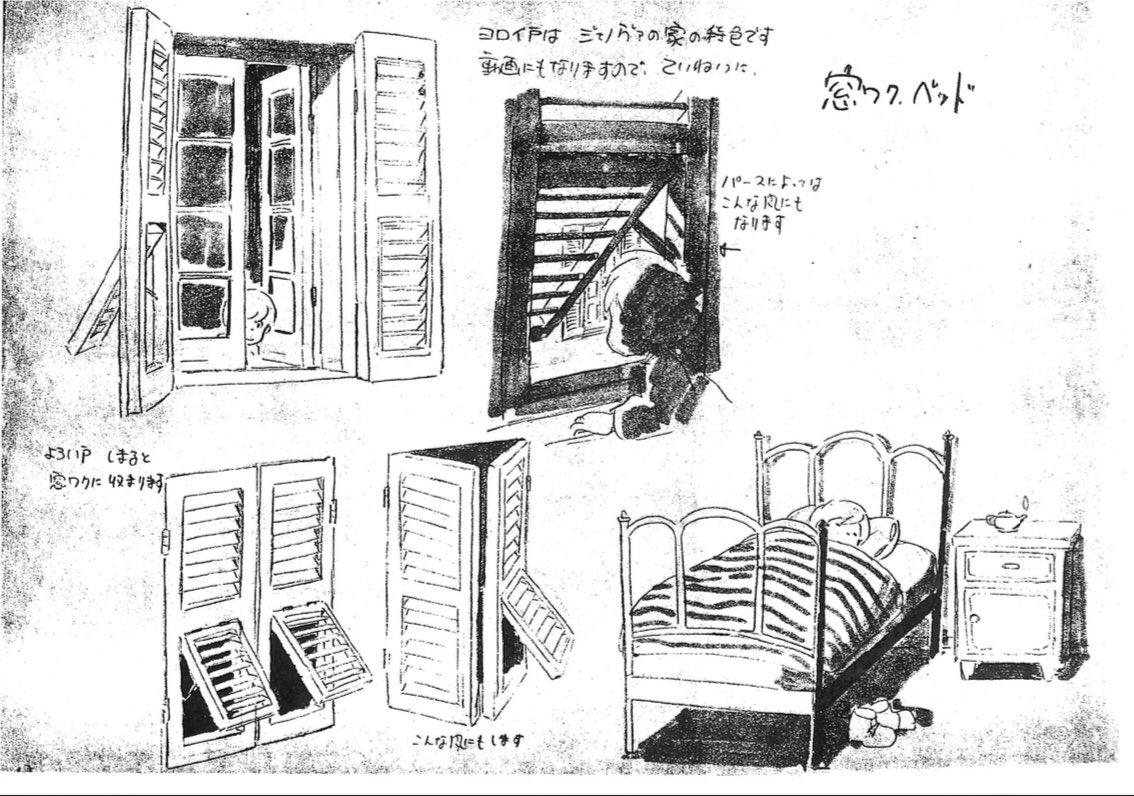 ヨロイ戸は ジェノヴァの家の特色です
動画にもなりますので、ていねいに、
窓ワク、ベッド
パースによっては
こんな風にも
なります
よろい戸 しまると
窓ワクに収まります
こんな風にもします